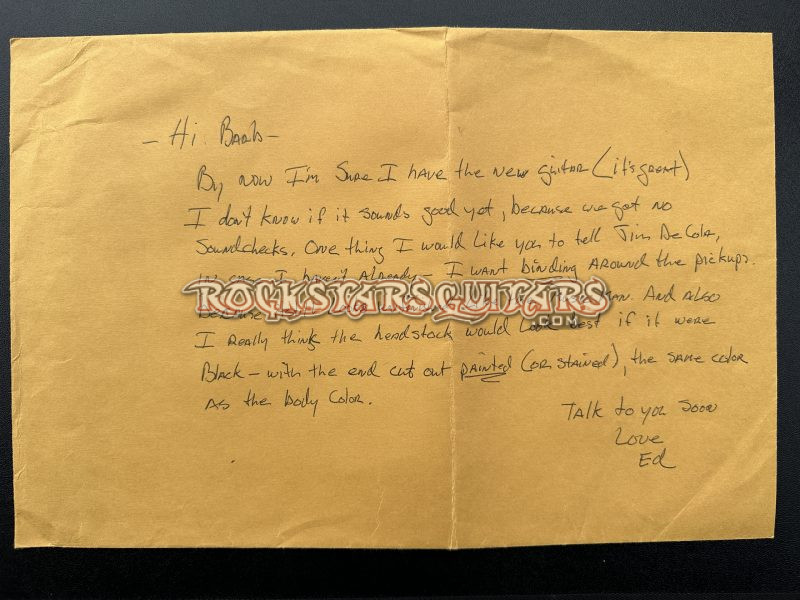 — Hi Barb —
By now I'm sure I have the new guitar (it's great)
I don't know if it sounds good yet, because we got no
Soundchecks. One thing I would like you to tell Jim DeCola,
in case I haven't already — I want binding around the pickups.
ROCKSTARSGUITARS
.COM
because And also
I really think the headstock would look best if it were
Black — with the end cut out painted (or stained), the same color
as the body color.
Talk to you soon
Love
Ed